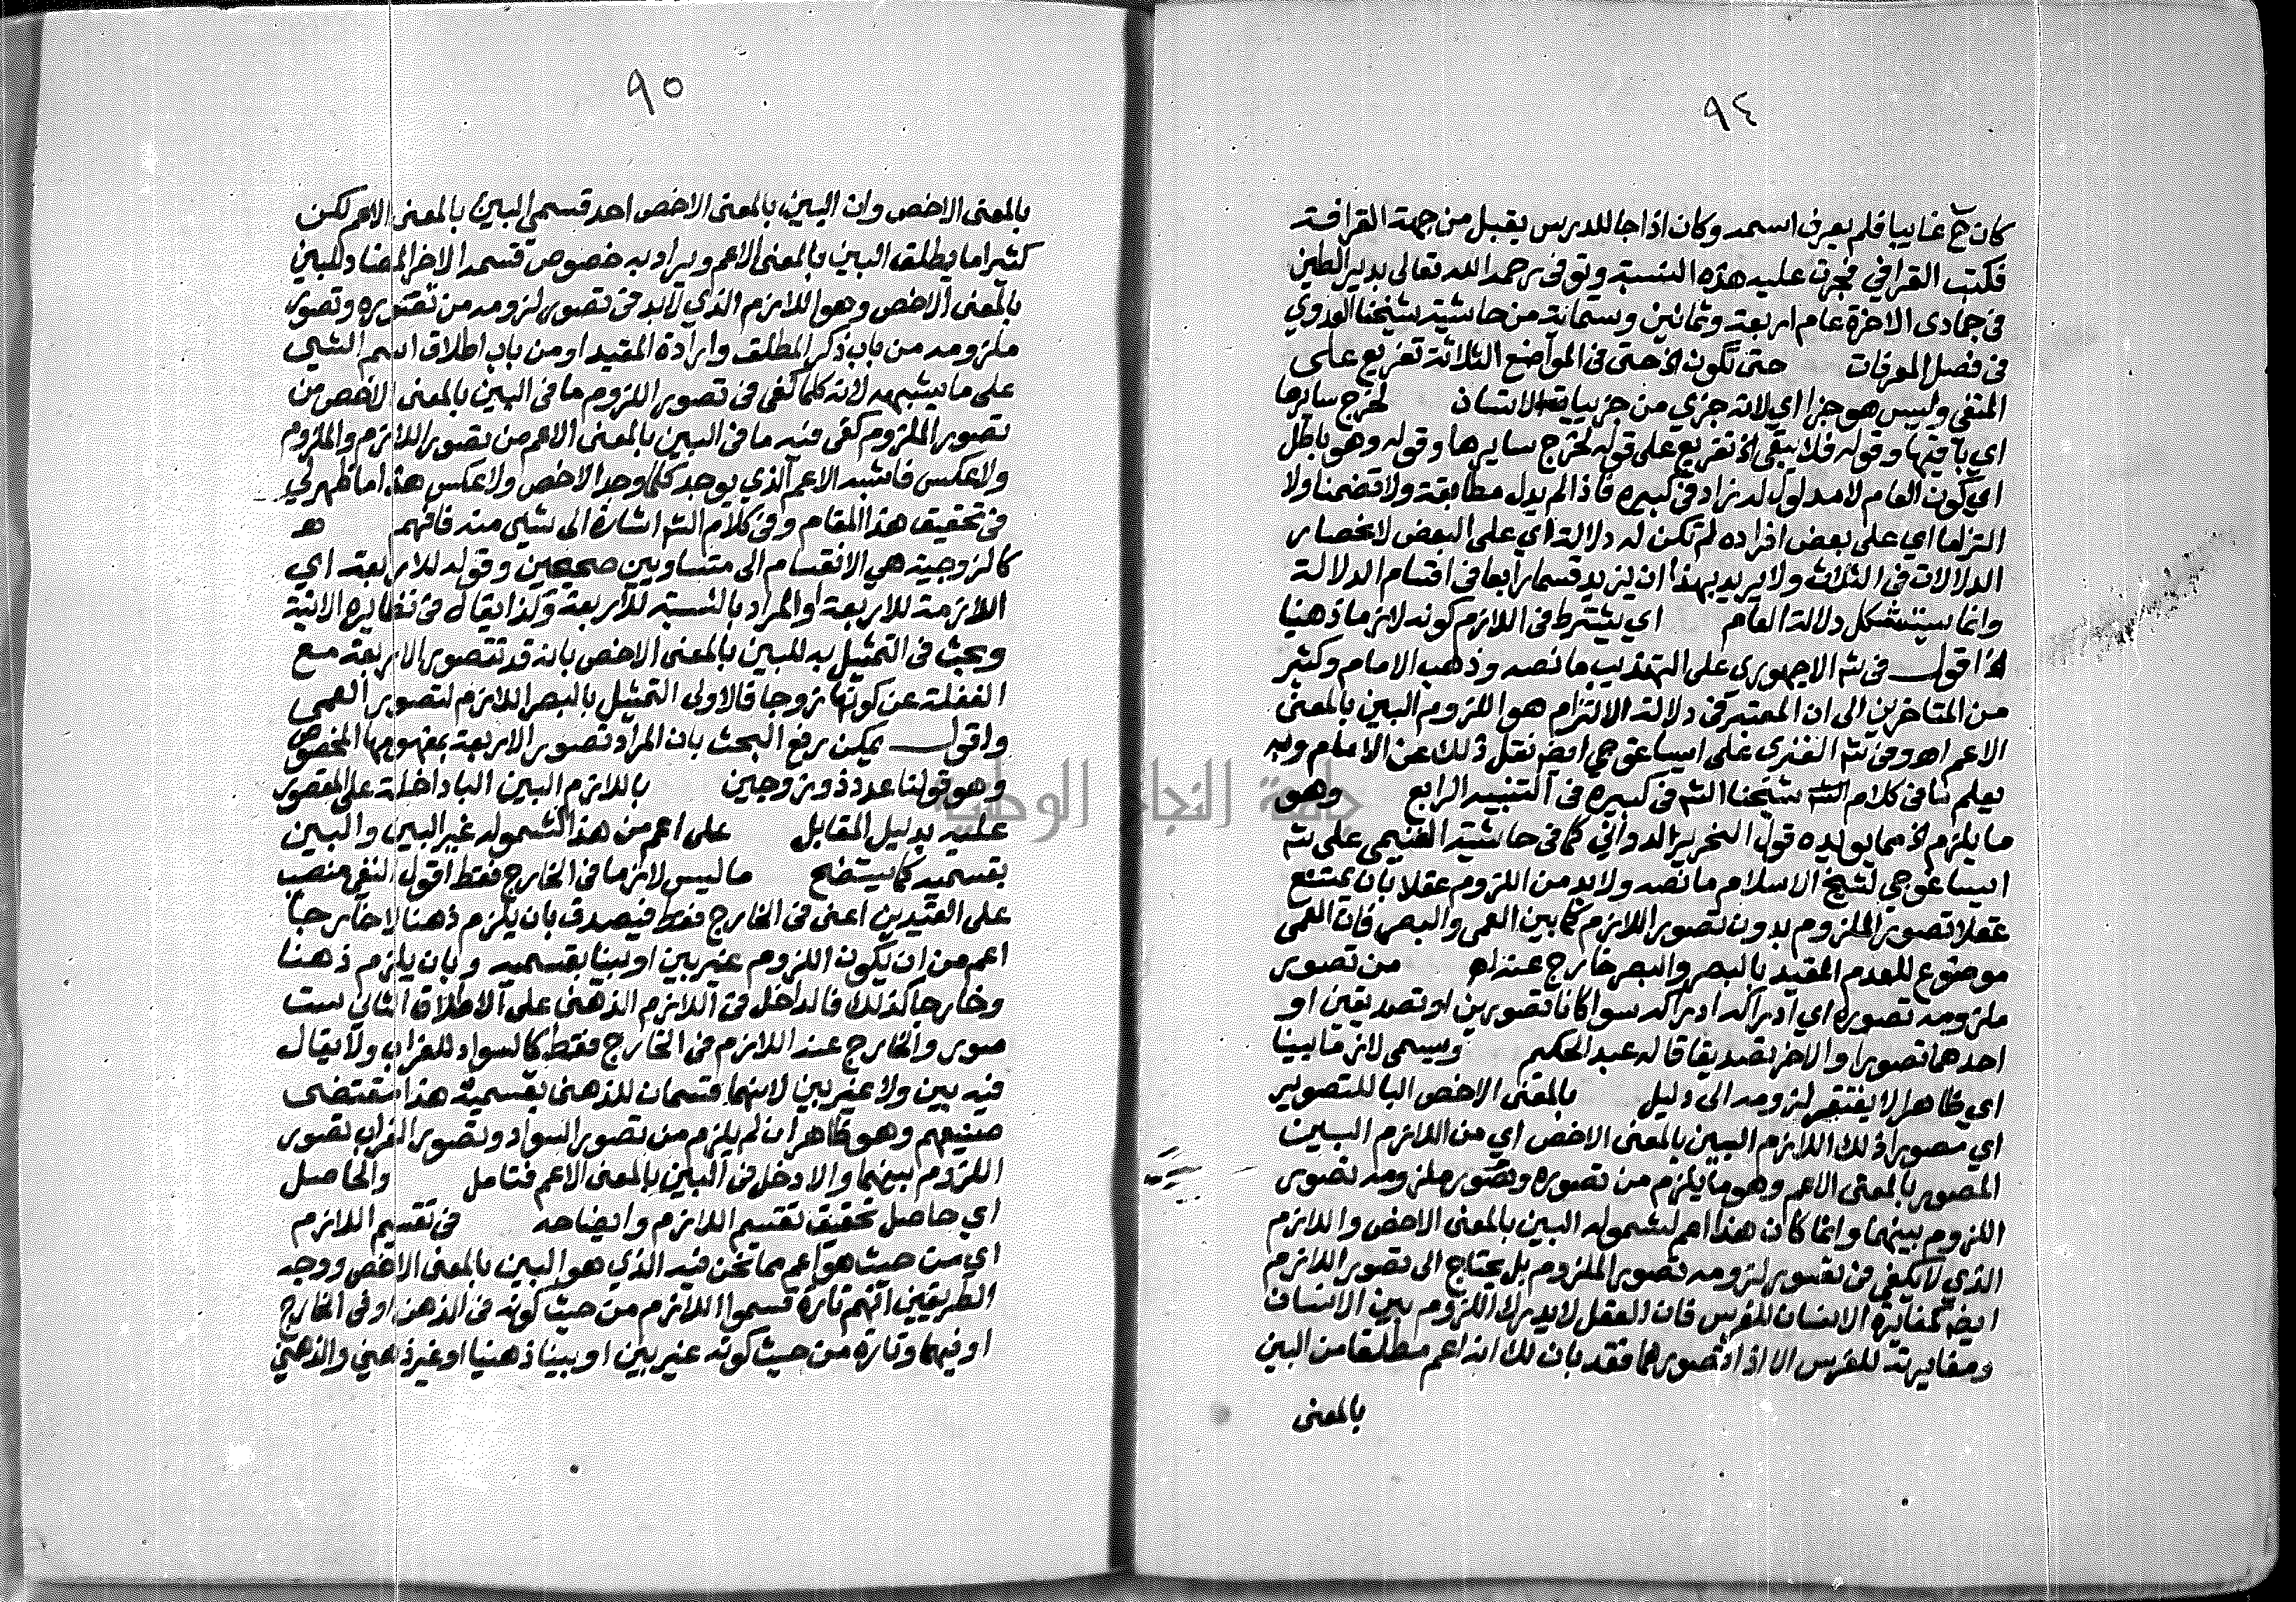 ٩٤
كان ح غايبا فلم يعرف اسمه وكان اذا جا للدرس يقبل من جهة القرافة
فكتب القرافي فجرت عليه هذه النسبة وتوفى رحمه الله تعالى بدير الطين
فى جمادى الاخرة عام اربعة وثمانين وستماية من حاشية شيخنا العدوي
فى فصل المعرفات حتى تكون الخ حتى فى المواضع الثلاثة تفريع على
المنفى وليس هو جزا اي لانه جزي من جزييات الانسان لخرج سايرها
اي باقيها وقوله فلا يبقى الخ تفريع على قوله لخرج سايرها وقوله وهو باطل
اي كون العام لا مدلول له زاد فى كبيره فاذا لم يدل مطابقة ولا تضمنا ولا
التزاما اي على بعض افراده لم تكن له دلالة اي على البعض لانحصار
الدلالات فى الثلاث ولا يريد بهذا ان يزيد قسما رابعا فى اقسام الدلالة
وانما يستشكل دلالة العام اي يشترط فى اللازم كونه لازما ذهنيا
الخ اقول فى شرح الاجهورى على التهذيب ما نصه وذهب الامام وكثير
من المتاخرين الى ان المعتبر فى دلالة الالتزام هو اللزوم البين بالمعنى
الاعم اهـ وفى شرح الفنرى على ايساغوجي ايضا نقل ذلك عن الامام وبه
يعلم ما فى كلام شيخنا الشم فى كبيره فى التنبيه الرابع وهو
ما يلزم الخ مما يويده قول النحرير الدواني كما فى حاشية الغنيمى على شرح
ايساغوجي لشيخ الاسلام ما نصه ولا بد من اللزوم عقلا بان يمتنع
عقلا تصور الملزوم بدون تصور اللازم كما بين العمى والبصر فان العمى
موضوع للعدم المقيد بالبصر والبصر خارج عنه اهـ من تصور
ملزومه تصوره اي ادراكه ادراكه سوا كانا تصورين او تصديقين او
احدهما تصورا والاخر تصديقا قاله عبد الحكيم ويسمى لازما بينا
اي ظاهرا لا يفتقر لزومه الى دليل بالمعنى الاخص البا للتصوير
اي مصورا ذلك اللازم البين بالمعنى الاخص اي من اللازم البين
المصور بالمعنى الاعم وهو ما يلزم من تصوره وتصور ملزومه تصور
اللزوم بينهما وانما كان هذا اعم لشموله البين بالمعنى الاخص واللازم
الذي لا يكفي فى تصور لزومه تصور الملزوم بل يحتاج الى تصور اللازم
ايضا كمغايرة الانسان للفرس فان العقل لا يدرك اللزوم بين الانسان
ومغايرته للفرس الا اذا تصورهما فقد بان لك انه اعم مطلقا من البين
بالمعنى
٩٥
بالمعنى الاخص وان البين بالمعنى الاخص احد قسمي البين بالمعنى الاعم لكن
كثيرا ما يطلق البين بالمعنى الاعم ويراد به خصوص قسمه الاخر المضاد للبين
بالمعنى الاخص وهو اللازم الذي لا بد فى تصور لزومه من تصوره وتصور
ملزومه من باب ذكر المطلق وارادة المقيد او من باب اطلاق اسم الشي
على ما يشبهه لانه كلما كفى فى تصور اللزوم ما فى البين بالمعنى الاخص من
تصور الملزوم كفى فيه ما فى البين بالمعنى الاعم من تصور اللازم والملزوم
ولا عكس فاشبه الاعم الذي يوجد كلما وجد الاخص ولا عكس هذا ما ظهر لي
فى تحقيق هذا المقام وفى كلام الشم اشارة الى شي منه فافهم
كالزوجية هي الانقسام الى متساويين صحيحين وقوله للاربعة اي
اللازمة للاربعة او المراد بالنسبة للاربعة وكذا يقال فى نظايره الاتية
وبحث فى التمثيل به للبين بالمعنى الاخص بانه قد تتصور الاربعة مع
الغفلة عن كونها زوجا فالاولى التمثيل بالبصر اللازم لتصور العمى
واقول يمكن رفع البحث بان المراد تصور الاربعة بمفهومها المخصوص
وهو قولنا عدد ذو زوجين باللازم البين البا داخلة على المقصور
عليه بدليل المقابل على اعم من هذا لشموله غير البين والبين
بقسميه كما سيتضح ما ليس لازما فى الخارج فقط اقول النفى منصب
على القيدين اعنى فى الخارج فقط فيصدق بان يلزم ذهنا لا خارجا
اعم من ان يكون اللزوم غير بين او بينا بقسميه وبان يلزم ذهنا
وخارجا كذلك فالداخل فى اللازم الذهنى على الاطلاق الثاني ست
صور والخارج عنه اللازم فى الخارج فقط كالسواد للغراب ولا يقال
فيه بين ولا غير بين لانهما قسمان للذهنى بقسميه هذا مقتضى
صنيعهم وهو ظاهر ان لم يلزم من تصور السواد وتصور الغراب تصور
اللزوم بينهما والا دخل فى البين بالمعنى الاعم فتامل والحاصل
اي حاصل تحقيق تقسيم اللازم وايضاحه فى تقسيم اللازم
اي من حيث هو اعم مما نحن فيه الذي هو البين بالمعنى الاخص ووجه
الطريقين انهم تارة قسموا اللازم من حيث كونه فى الذهن او فى الخارج
او فيهما وتارة من حيث كونه غير بين او بينا ذهنيا او غير ذهني والذهني
جامعة النجاح الوطنية